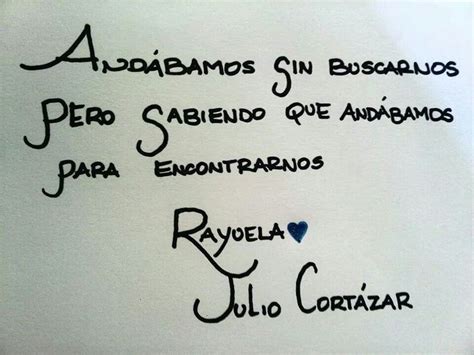 Andábamos sin buscarnos
Pero sabiendo que andábamos
para encontrarnos
Rayuela
Julio Cortázar